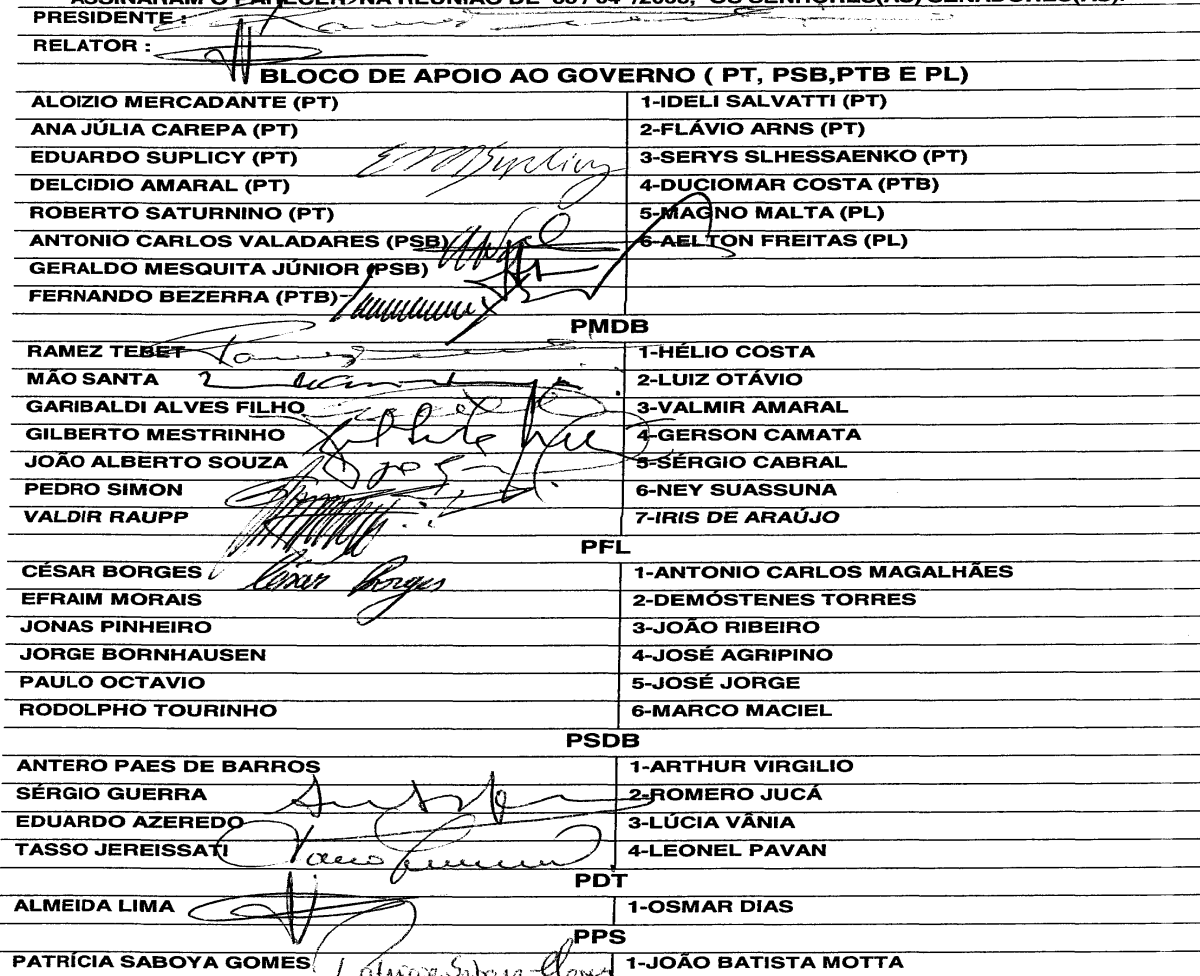 ASSINARAM O PARECER NA REUNIÃO DE OS SENHORES(AS) SENADORES(AS):
PRESIDENTE :
RELATOR :
BLOCO DE APOIO AO GOVERNO ( PT, PSB,PTB E PL)
ALOIZIO MERCADANTE (PT) 1-IDELI SALVATTI (PT)
ANA JÚLIA CAREPA (PT) 2-FLÁVIO ARNS (PT)
EDUARDO SUPLICY (PT) 3-SERYS SLHESSAENKO (PT)
DELCIDIO AMARAL (PT) 4-DUCIOMAR COSTA (PTB)
ROBERTO SATURNINO (PT) 5-MAGNO MALTA (PL)
ANTONIO CARLOS VALADARES (PSB) 6-AELTON FREITAS (PL)
GERALDO MESQUITA JÚNIOR (PSB)
FERNANDO BEZERRA (PTB)
PMDB
RAMEZ TEBET 1-HÉLIO COSTA
MÃO SANTA 2-LUIZ OTÁVIO
GARIBALDI ALVES FILHO 3-VALMIR AMARAL
GILBERTO MESTRINHO 4-GERSON CAMATA
JOÃO ALBERTO SOUZA 5-SÉRGIO CABRAL
PEDRO SIMON 6-NEY SUASSUNA
VALDIR RAUPP 7-IRIS DE ARAÚJO
PFL
CÉSAR BORGES César Borges 1-ANTONIO CARLOS MAGALHÃES
EFRAIM MORAIS 2-DEMÓSTENES TORRES
JONAS PINHEIRO 3-JOÃO RIBEIRO
JORGE BORNHAUSEN 4-JOSÉ AGRIPINO
PAULO OCTAVIO 5-JOSÉ JORGE
RODOLPHO TOURINHO 6-MARCO MACIEL
PSDB
ANTERO PAES DE BARROS 1-ARTHUR VIRGILIO
SÉRGIO GUERRA 2-ROMERO JUCÁ
EDUARDO AZEREDO 3-LÚCIA VÂNIA
TASSO JEREISSATI 4-LEONEL PAVAN
PDT
ALMEIDA LIMA 1-OSMAR DIAS
PPS
PATRÍCIA SABOYA GOMES 1-JOÃO BATISTA MOTTA